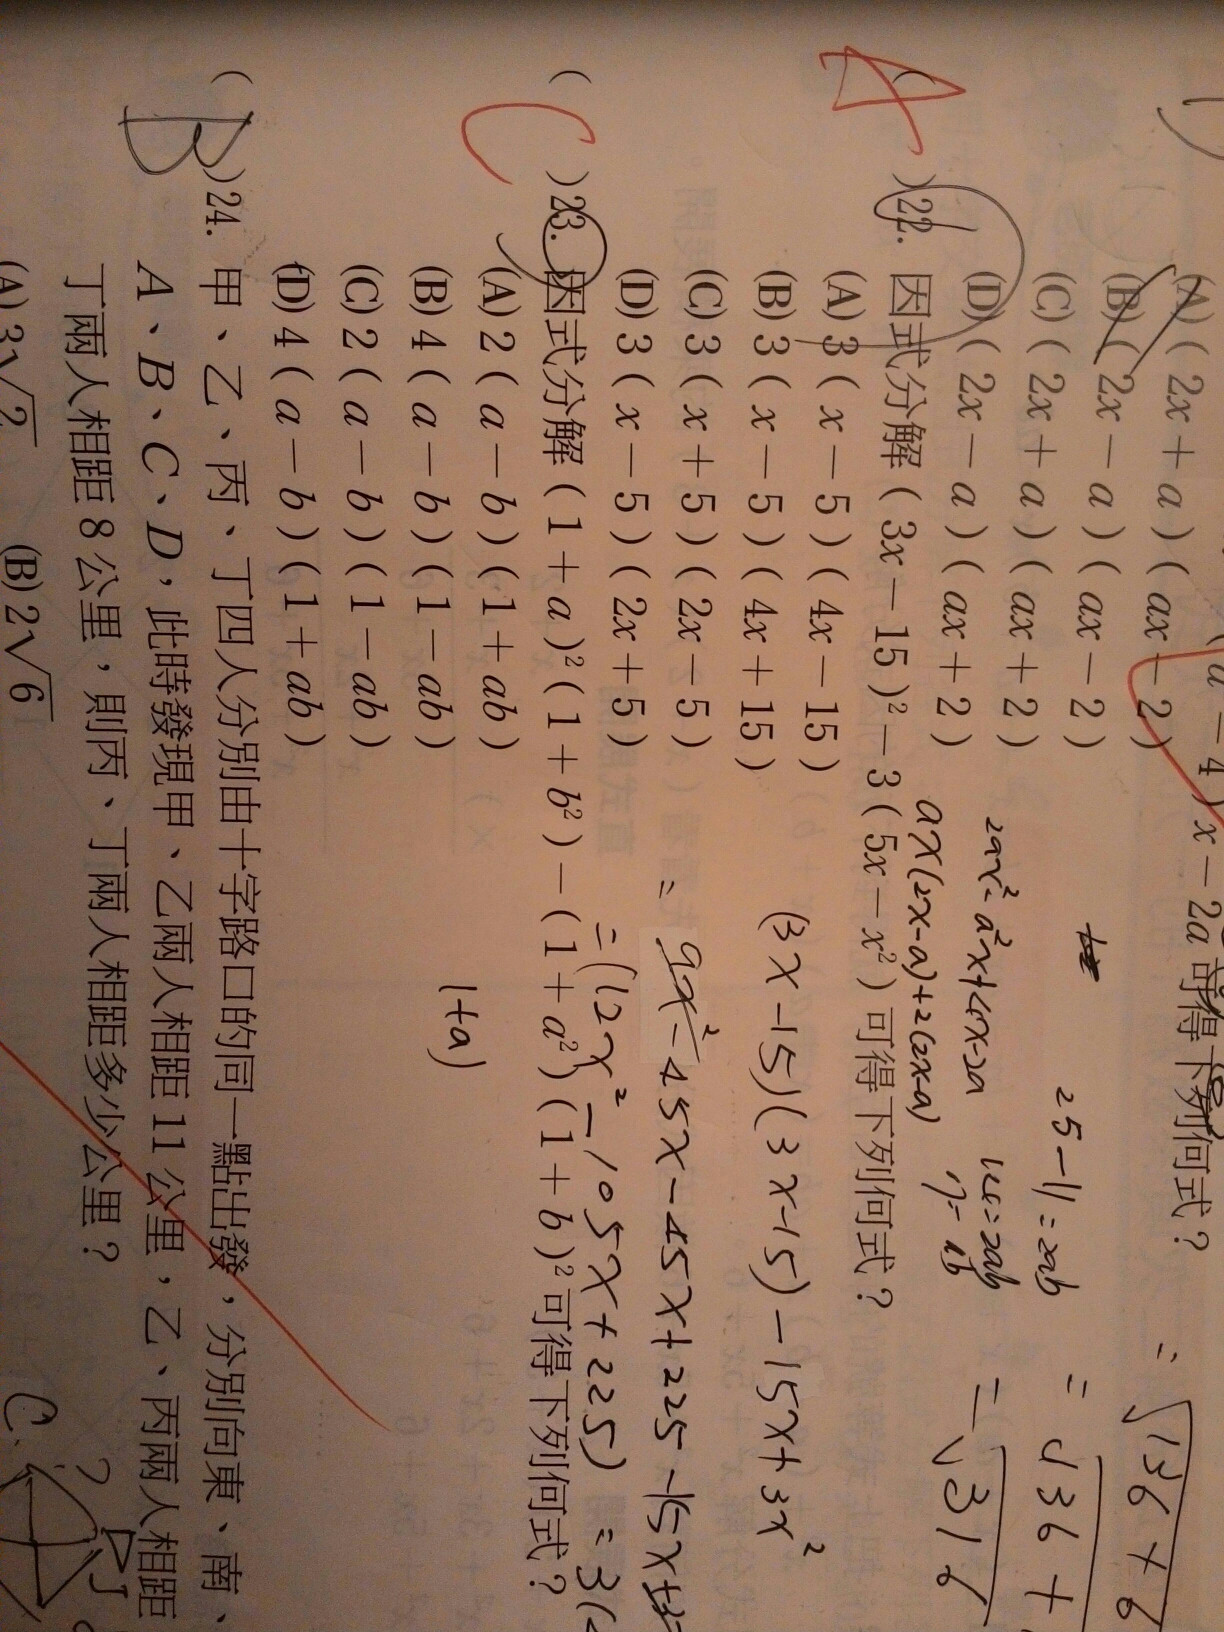 a－4）x－2a 可得下列何式？
(A)（2x＋a）（ax－2）
(B)（2x－a）（ax－2）
(C)（2x＋a）（ax＋2）
(D)（2x－a）（ax＋2）
2ax²-a²x+4x-2a
ax(2x-a)+2(2x-a)
25-11=2ab
14=2ab
7=ab
=√136+6
=√36+
=√316
A
( )22. 因式分解（3x－15）²－3（5x－x²）可得下列何式？
(A) 3（x－5）（4x－15）
(B) 3（x－5）（4x＋15）
(C) 3（x＋5）（2x－5）
(D) 3（x－5）（2x＋5）
(3x-15)(3x-15)-15x+3x²
=9x²-45x-45x+225-15x+3x²
=(12x²-105x+225)=3(
C
( )23. 因式分解（1＋a）²（1＋b²）－（1＋a²）（1＋b）²可得下列何式？
(A) 2（a－b）（1＋ab）
(B) 4（a－b）（1－ab）
(C) 2（a－b）（1－ab）
(D) 4（a－b）（1＋ab）
1+a)
B
( )24. 甲、乙、丙、丁四人分別由十字路口的同一點出發，分別向東、南、
A、B、C、D，此時發現甲、乙兩人相距 11 公里，乙、丙兩人相距
丁兩人相距 8 公里，則丙、丁兩人相距多少公里？
(A) 3√2 (B) 2√6
C
?